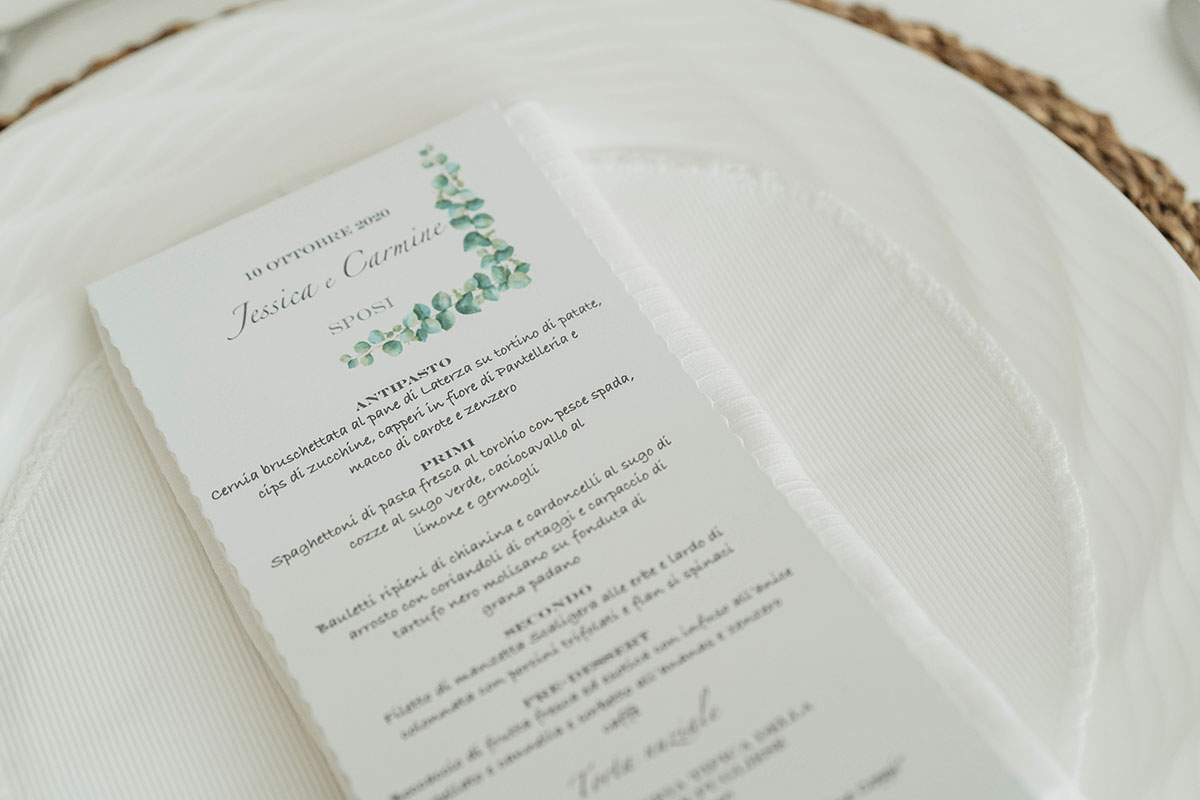 10 OTTOBRE 2020
Jessica e Carmine
SPOSI
ANTIPASTO
Cernia bruschettata al pane di Laterza su tortino di patate,
cips di zucchine, capperi in fiore di Pantelleria e
macco di carote e zenzero
PRIMI
Spaghettoni di pasta fresca al torchio con pesce spada,
cozze al sugo verde, caciocavallo al
limone e germogli
Bauletti ripieni di chianina e cardoncelli al sugo di
arrosto con coriandoli di ortaggi e carpaccio di
tartufo nero molisano su fonduta di
grana padano
SECONDO
Filetto di manzetta Scaligera alle erbe e lardo di
colonnata con porcini trifolati e flan si spinaci
PRE-DESSERT
di frutta fresca ed esotica con infuso all'anice
stellato e vaniglia e sorbetto all'ananas e zenzero
caffè
Torta nuziale